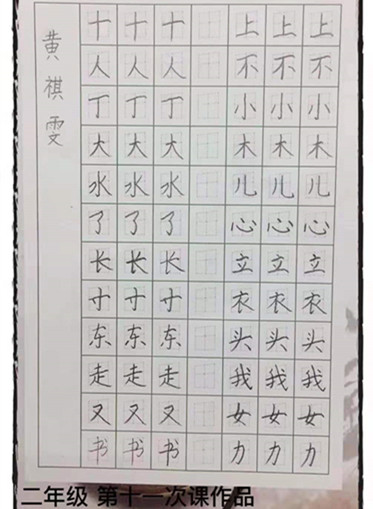 黄祺雯
十十十上上上
人人人不不不
丁丁丁小小小
大大大木木木
水水水儿儿儿
了了了心心心
长长长立立立
寸寸寸衣衣衣
东东东头头头
走走走我我我
又又又女女女
书书书力力力
二年级 第十一次课作品